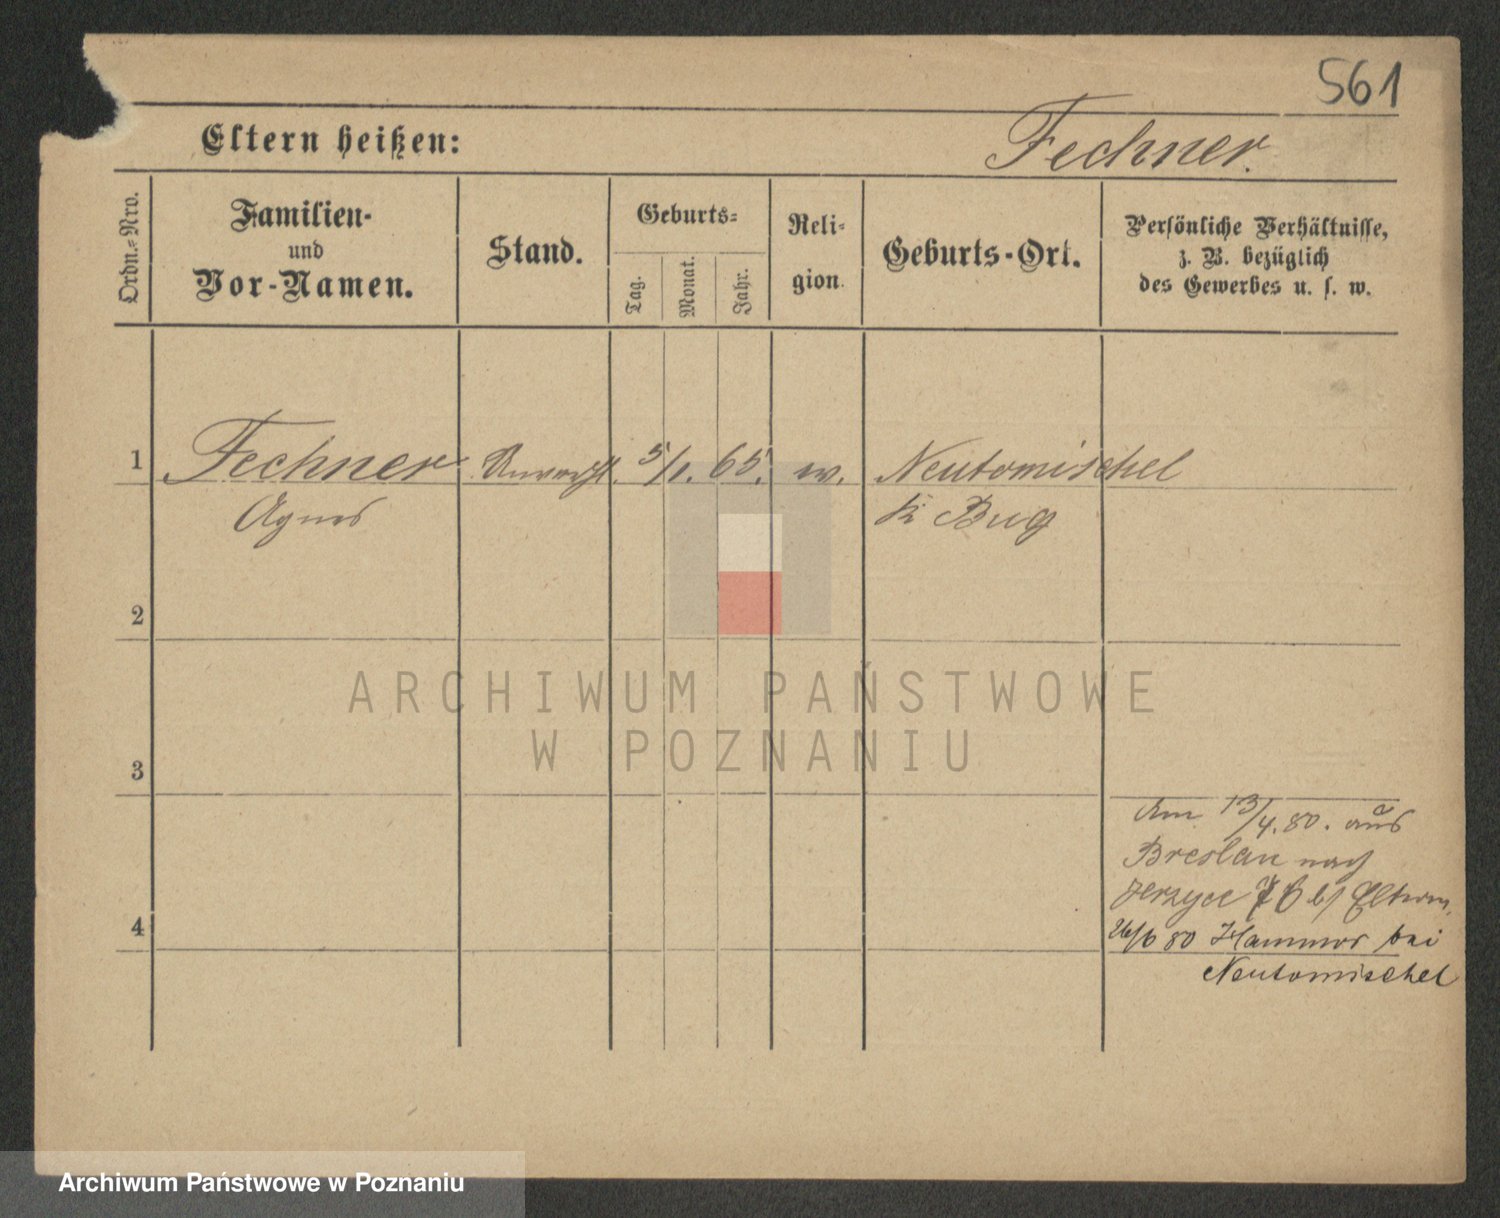 561
Eltern heißen: Fechner.
Ordn.-Nro.
Familien-
und
Vor-Namen.
Stand.
Geburts-
Tag.
Monat.
Jahr.
Reli-
gion.
Geburts-Ort.
Persönliche Verhältnisse,
z. B. bezüglich
des Gewerbes u. s. w.
1 Fechner 5/1. 65. Neutomischel
Agnes Kr Bug
2
3
4
Am 13/4. 80. aus
Breslau nach
Jerzyce b/ Eltern.
26/6 80 Hammer bei
Neutomischel
ARCHIWUM PAŃSTWOWE
W POZNANIU
Archiwum Państwowe w Poznaniu